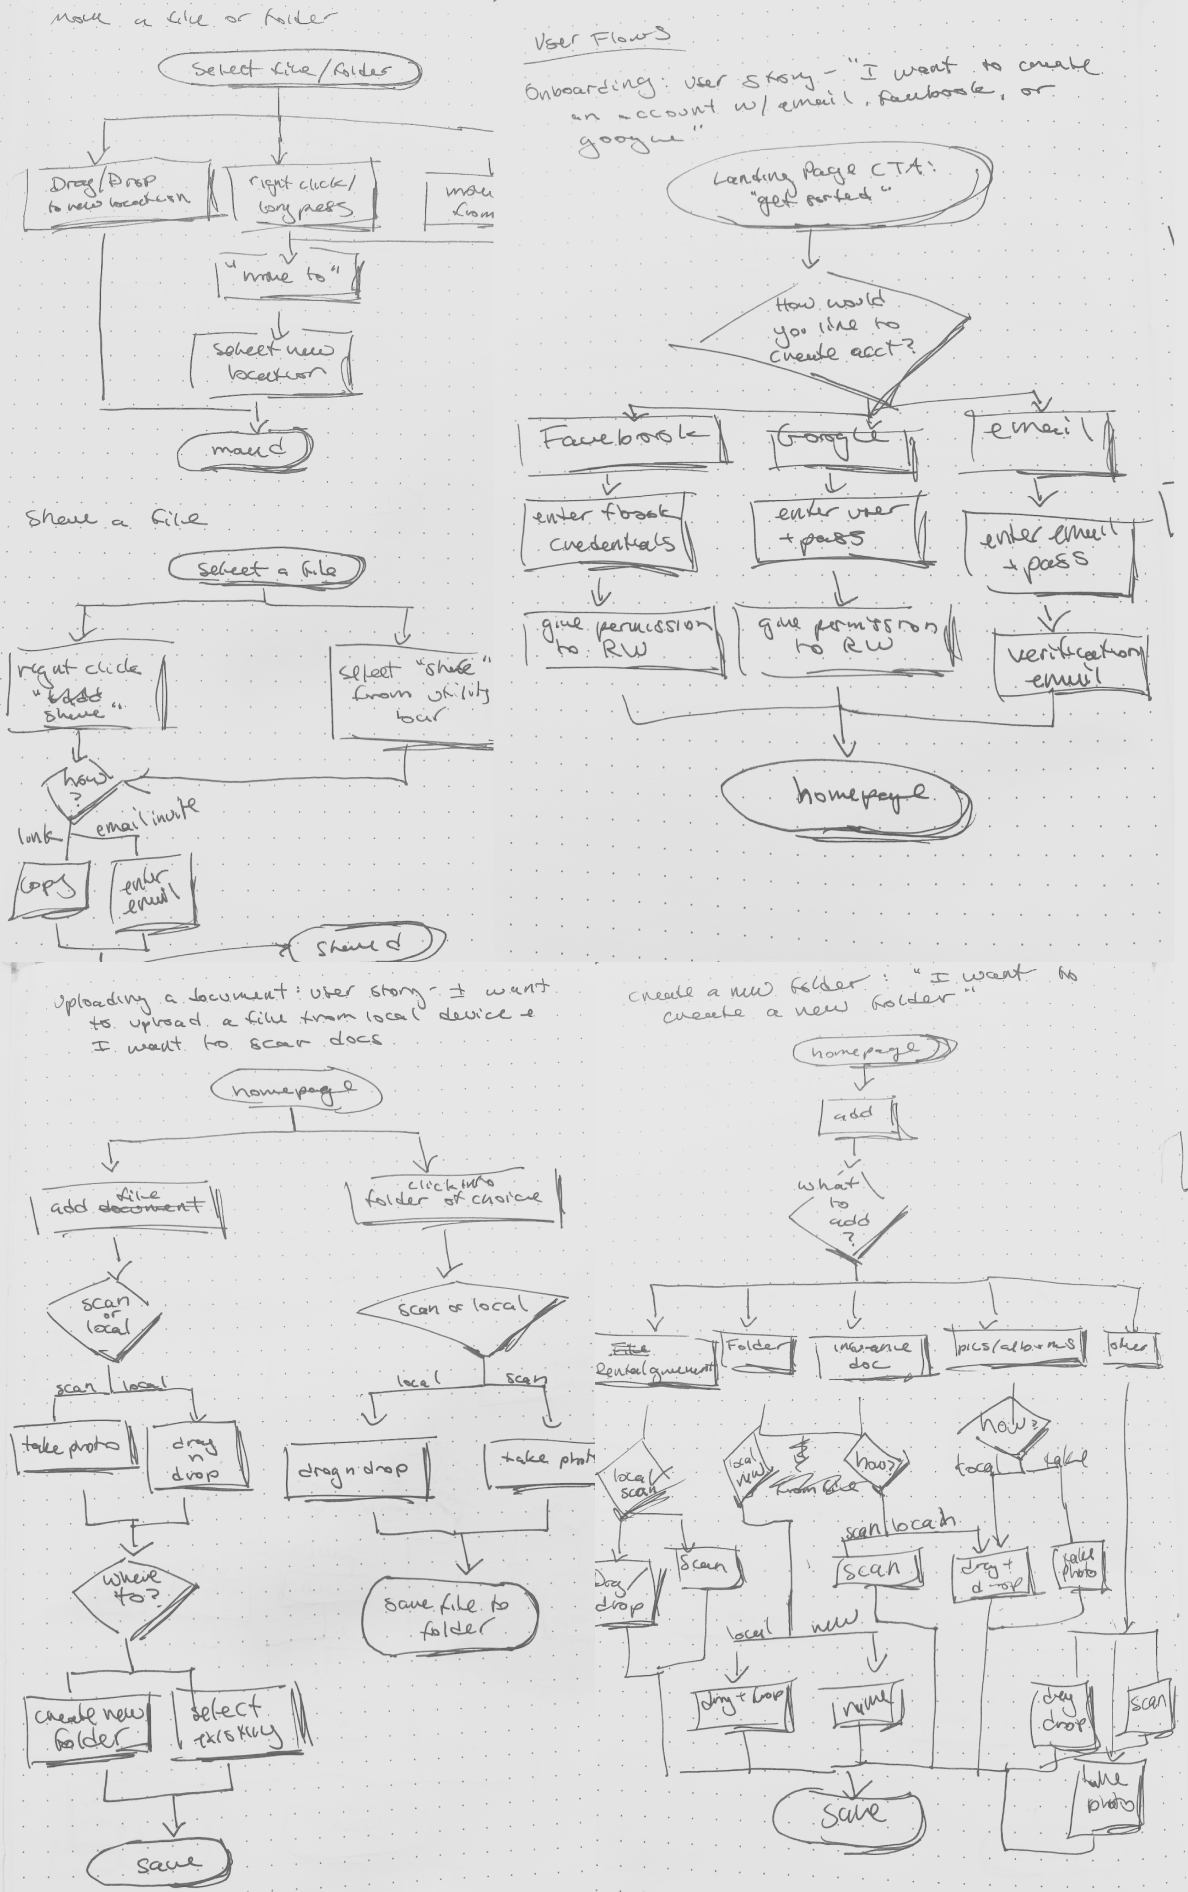 Move a file or folder
Select file/folder
Drag/Drop
to new location
right click/
long press
move
from
"move to"
select new
location
moved
Share a file
select a file
right click
"add
share"
select "share"
from utility
bar
how
?
link
email invite
copy
enter
email
shared
User Flows
Onboarding: User story - "I want to create
an account w/ email, facebook, or
google"
Landing Page CTA:
"get sorted"
How would
you like to
create acct?
Facebook
Google
email
enter fbook
credentials
enter user
+ pass
enter email
+ pass
give permission
to RW
give permission
to RW
verification
email
homepage
Uploading a document: user story - I want
to upload a file from local device +
I want to scan docs
homepage
file
add document
click into
folder of choice
scan
or
local
scan or local
scan
local
local
scan
take photo
drag
n
drop
drag n drop
take phot
where
to?
save file to
folder
create new
folder
select
existing
save
create a new folder: "I want to
create a new folder"
homepage
add
what
to
add
?
File
Rental agreement
Folder
insurance
doc
pics/albums
other
local
scan
local
new
from file
how?
how?
local
take
scan
local
Drag/
drop
scan
scan
drag +
drop
take
photo
local
new
drag + drop
name
drag
drop
scan
take
photo
save